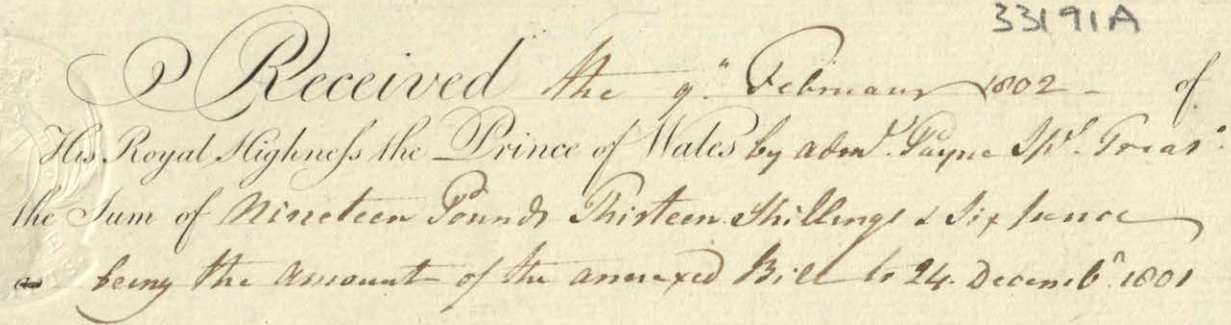 33191A
Received the 9th February 1802 - of
His Royal Highness the Prince of Wales by Adml. Payne Treasr.
the Sum of Nineteen Pounds Thirteen Shillings & Six pence
being the Amount of the annexed Bill to 24 Decembr. 1801